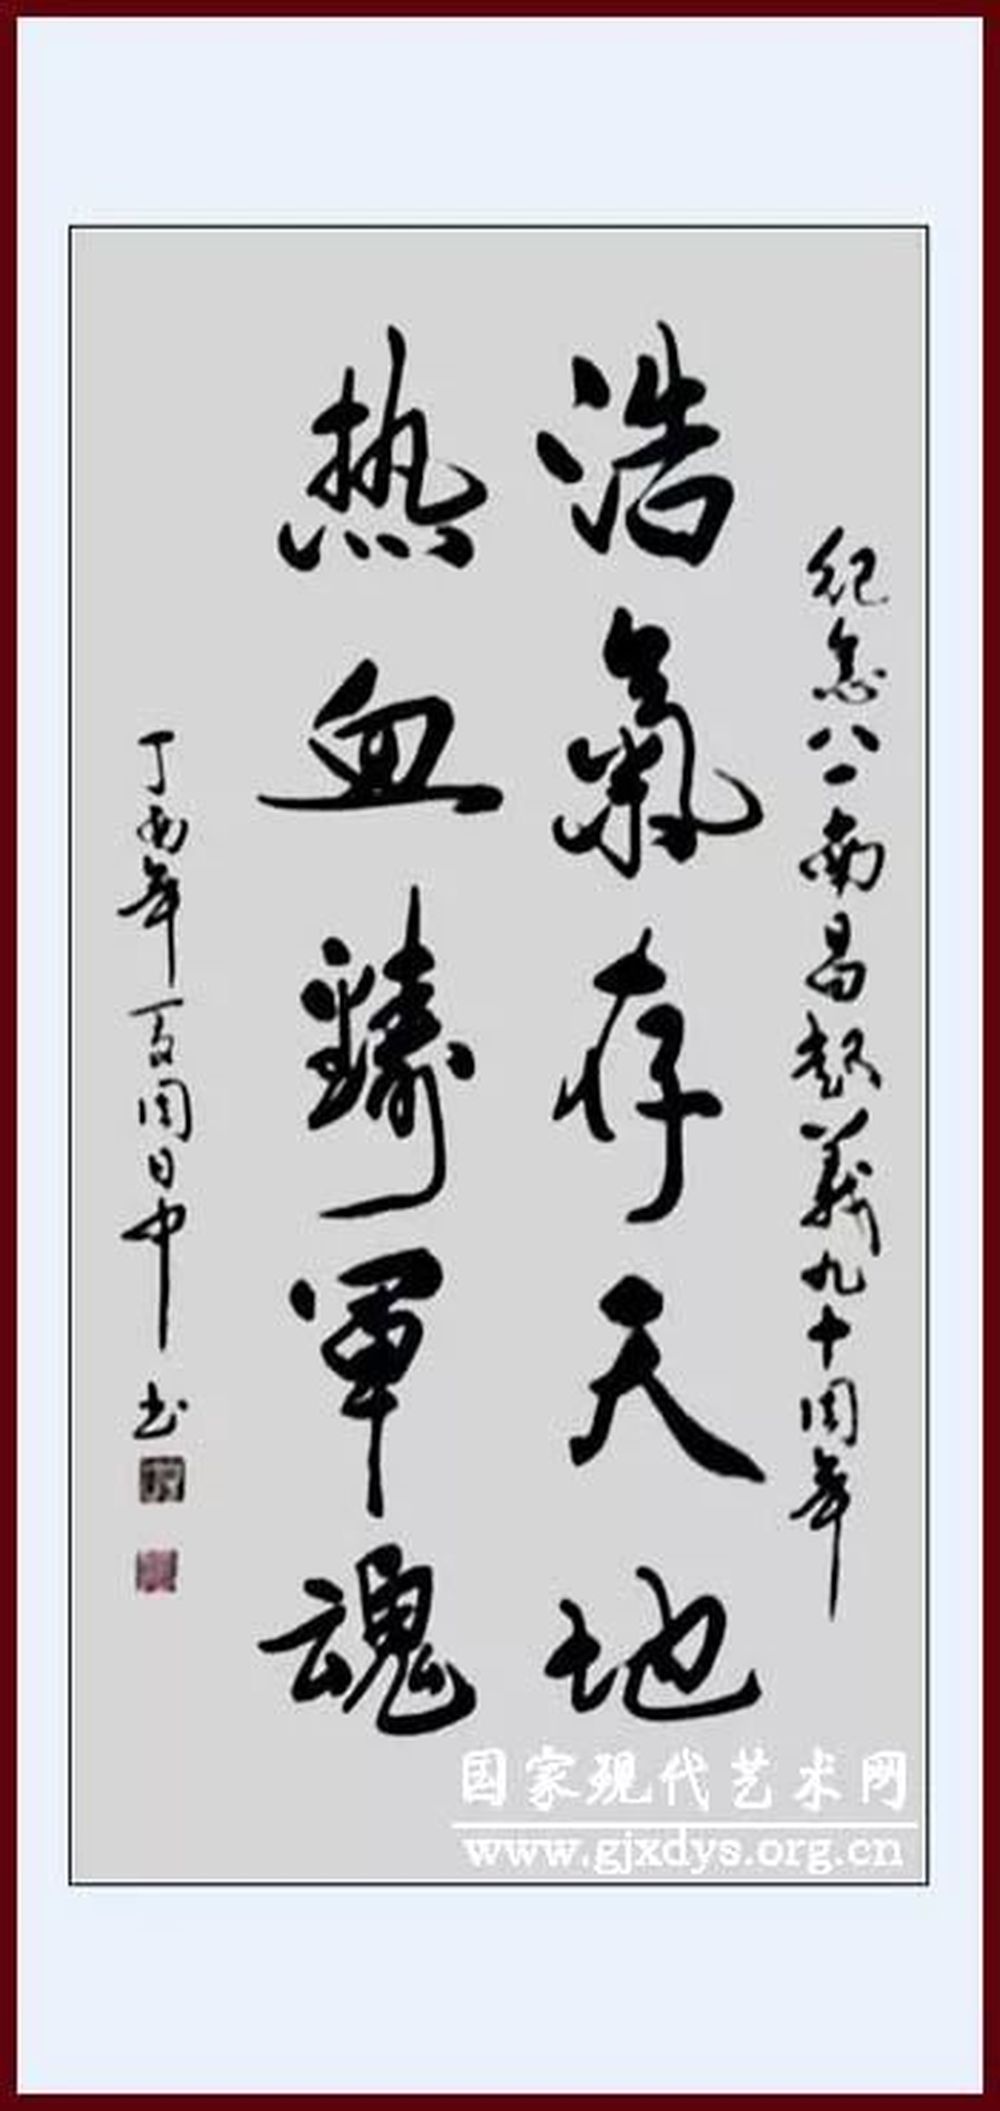 纪念八一南昌起義九十周年
浩氣存天地
热血鑄軍魂
丁酉年夏周日中书
国家现代艺术网
www.gjxdys.org.cn